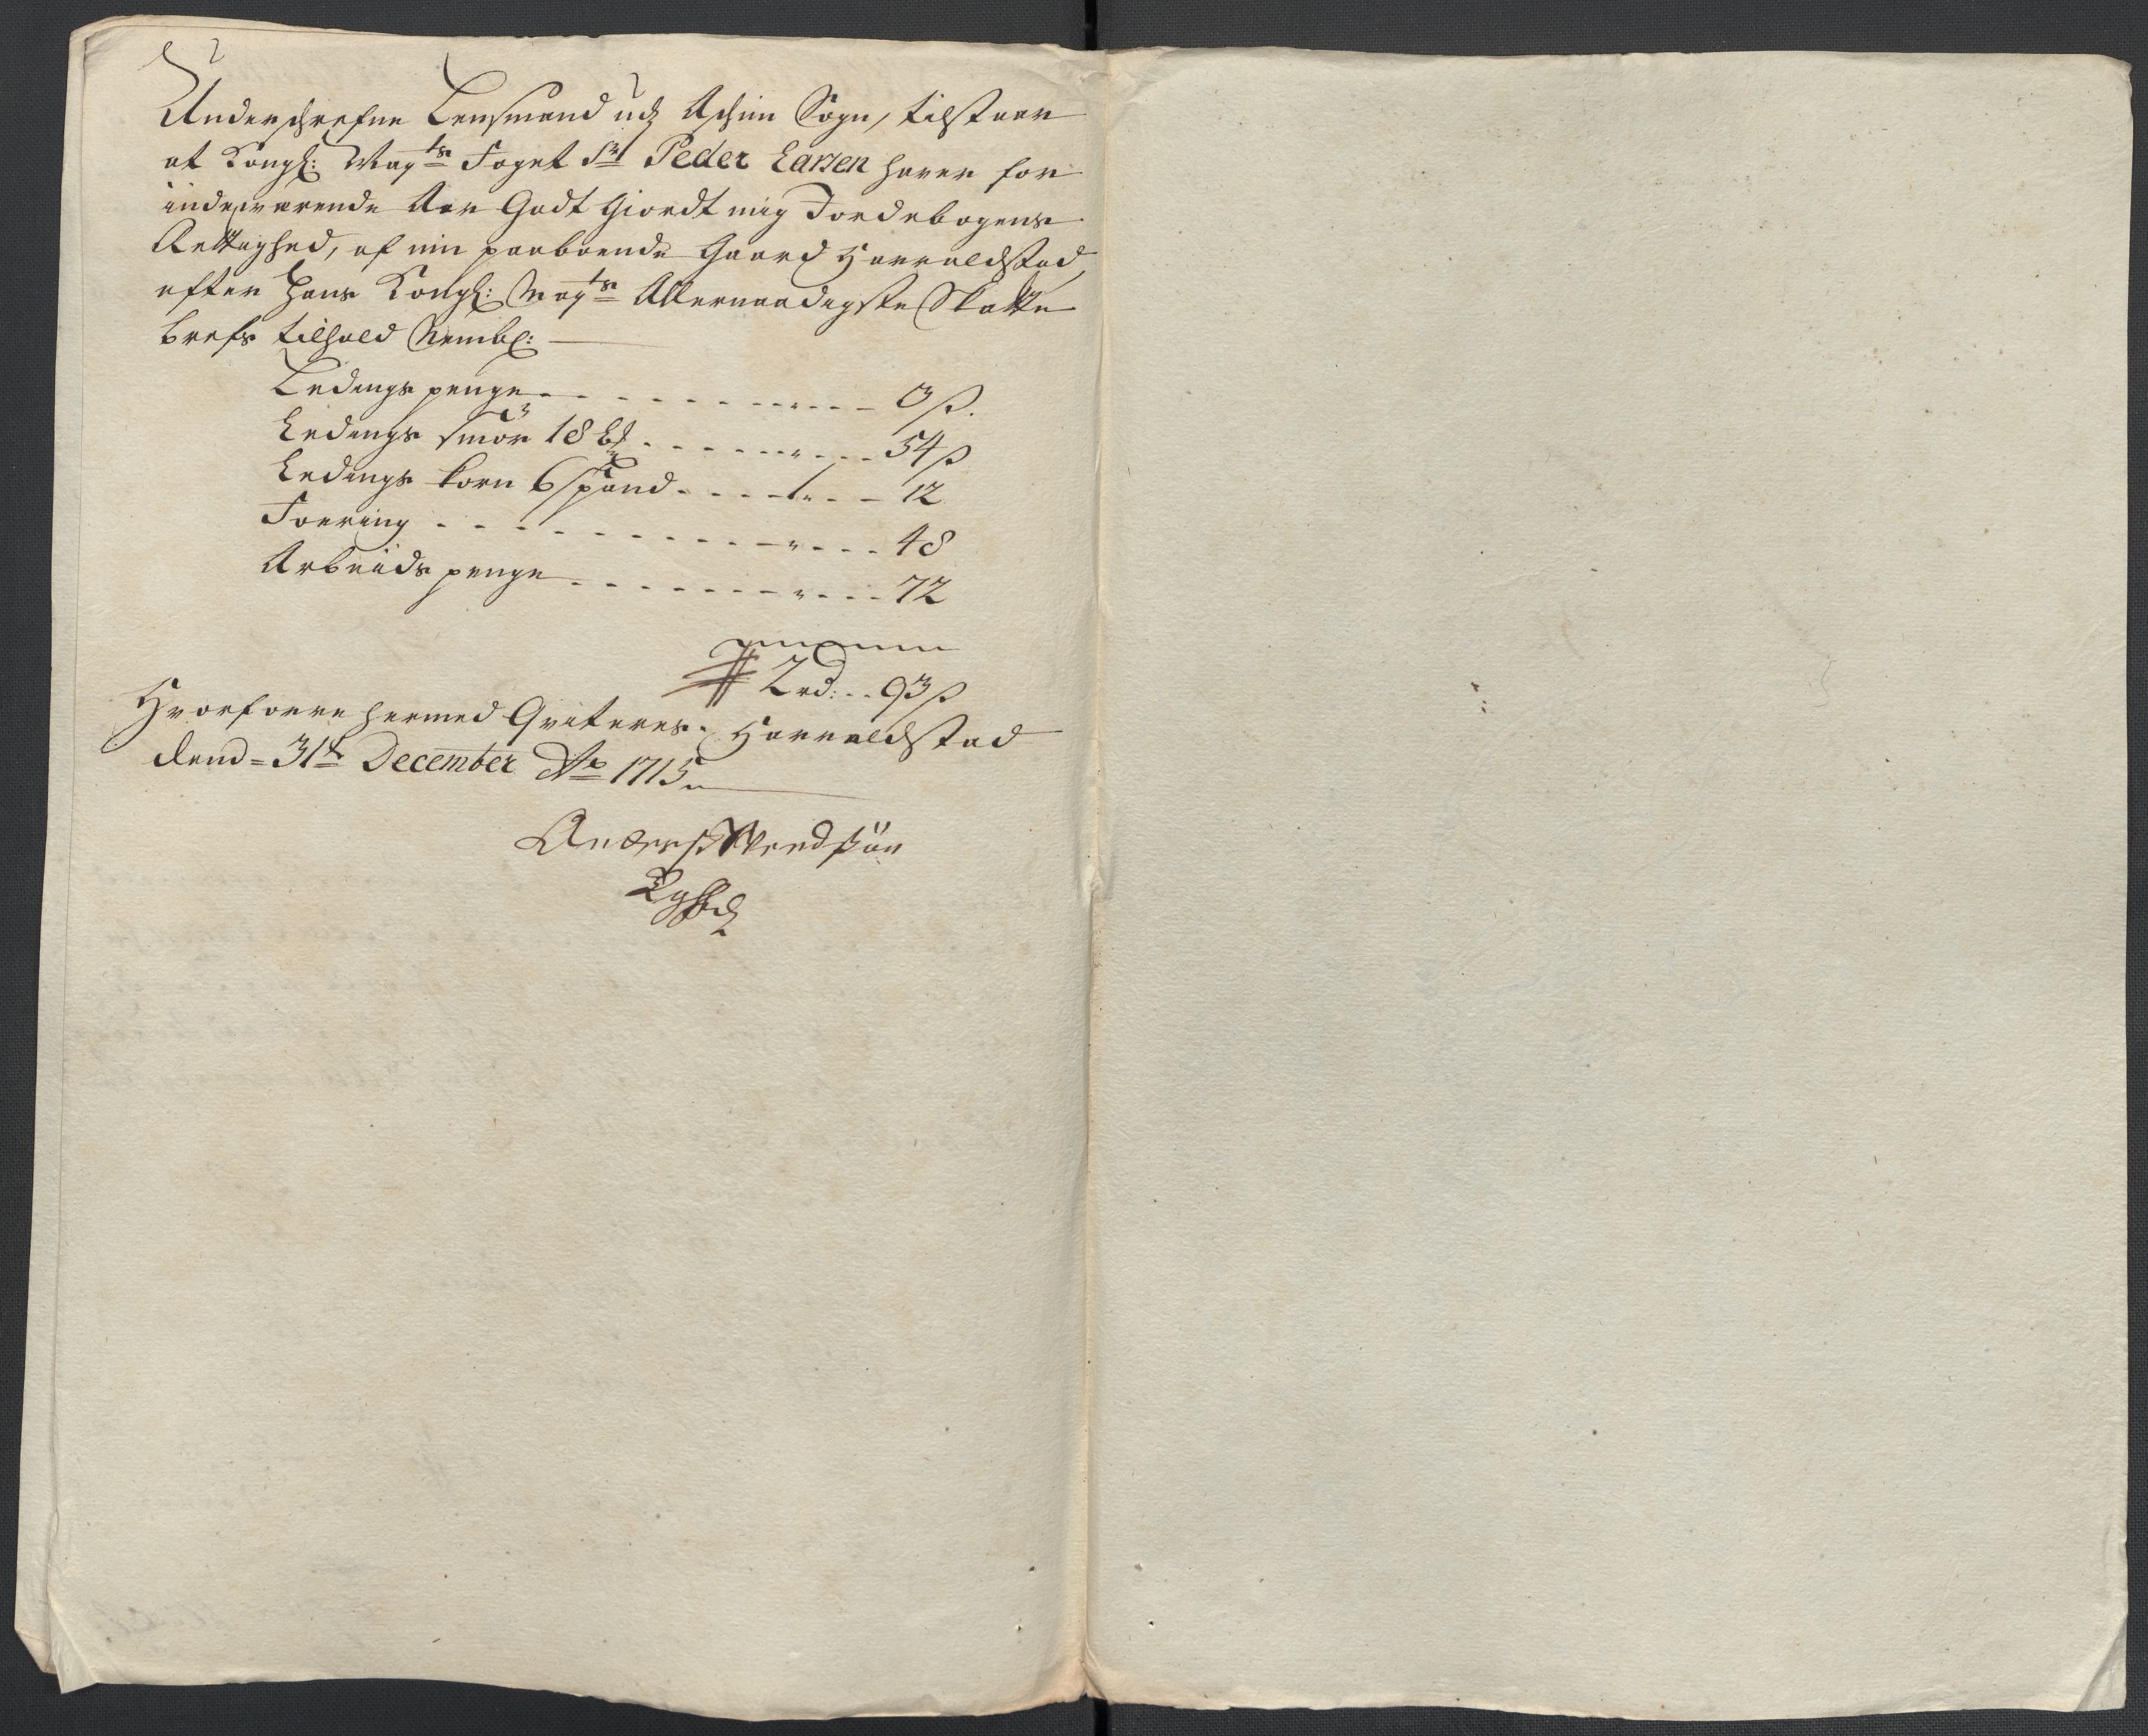 Underschrefne Lensmand udj Aschim Sogn, tilstaar
at Kongl: May:ts Foget Sr Peder Larsen haver for
indeværende Aar Godt Giordt mig Jordebogens
Rettighed, af min paaboende Gaard Harraldstad
efter Hans Kongl: May:ts Allernaadigste Skatte
brefs tilhold Nembl:
Ledings penge - - - - 3 ß.
Ledings smör 18 - - - - 54 ß
Ledings korn 6 spand - - 1 - - 12
Foering - - - - 48
Arbeids penge - - - - 72
2 rd: - - 93 ß
Hvorforre hermed Qviteres. Harraldstad
dend = 31te December Ao 1715
Anders Svendsön